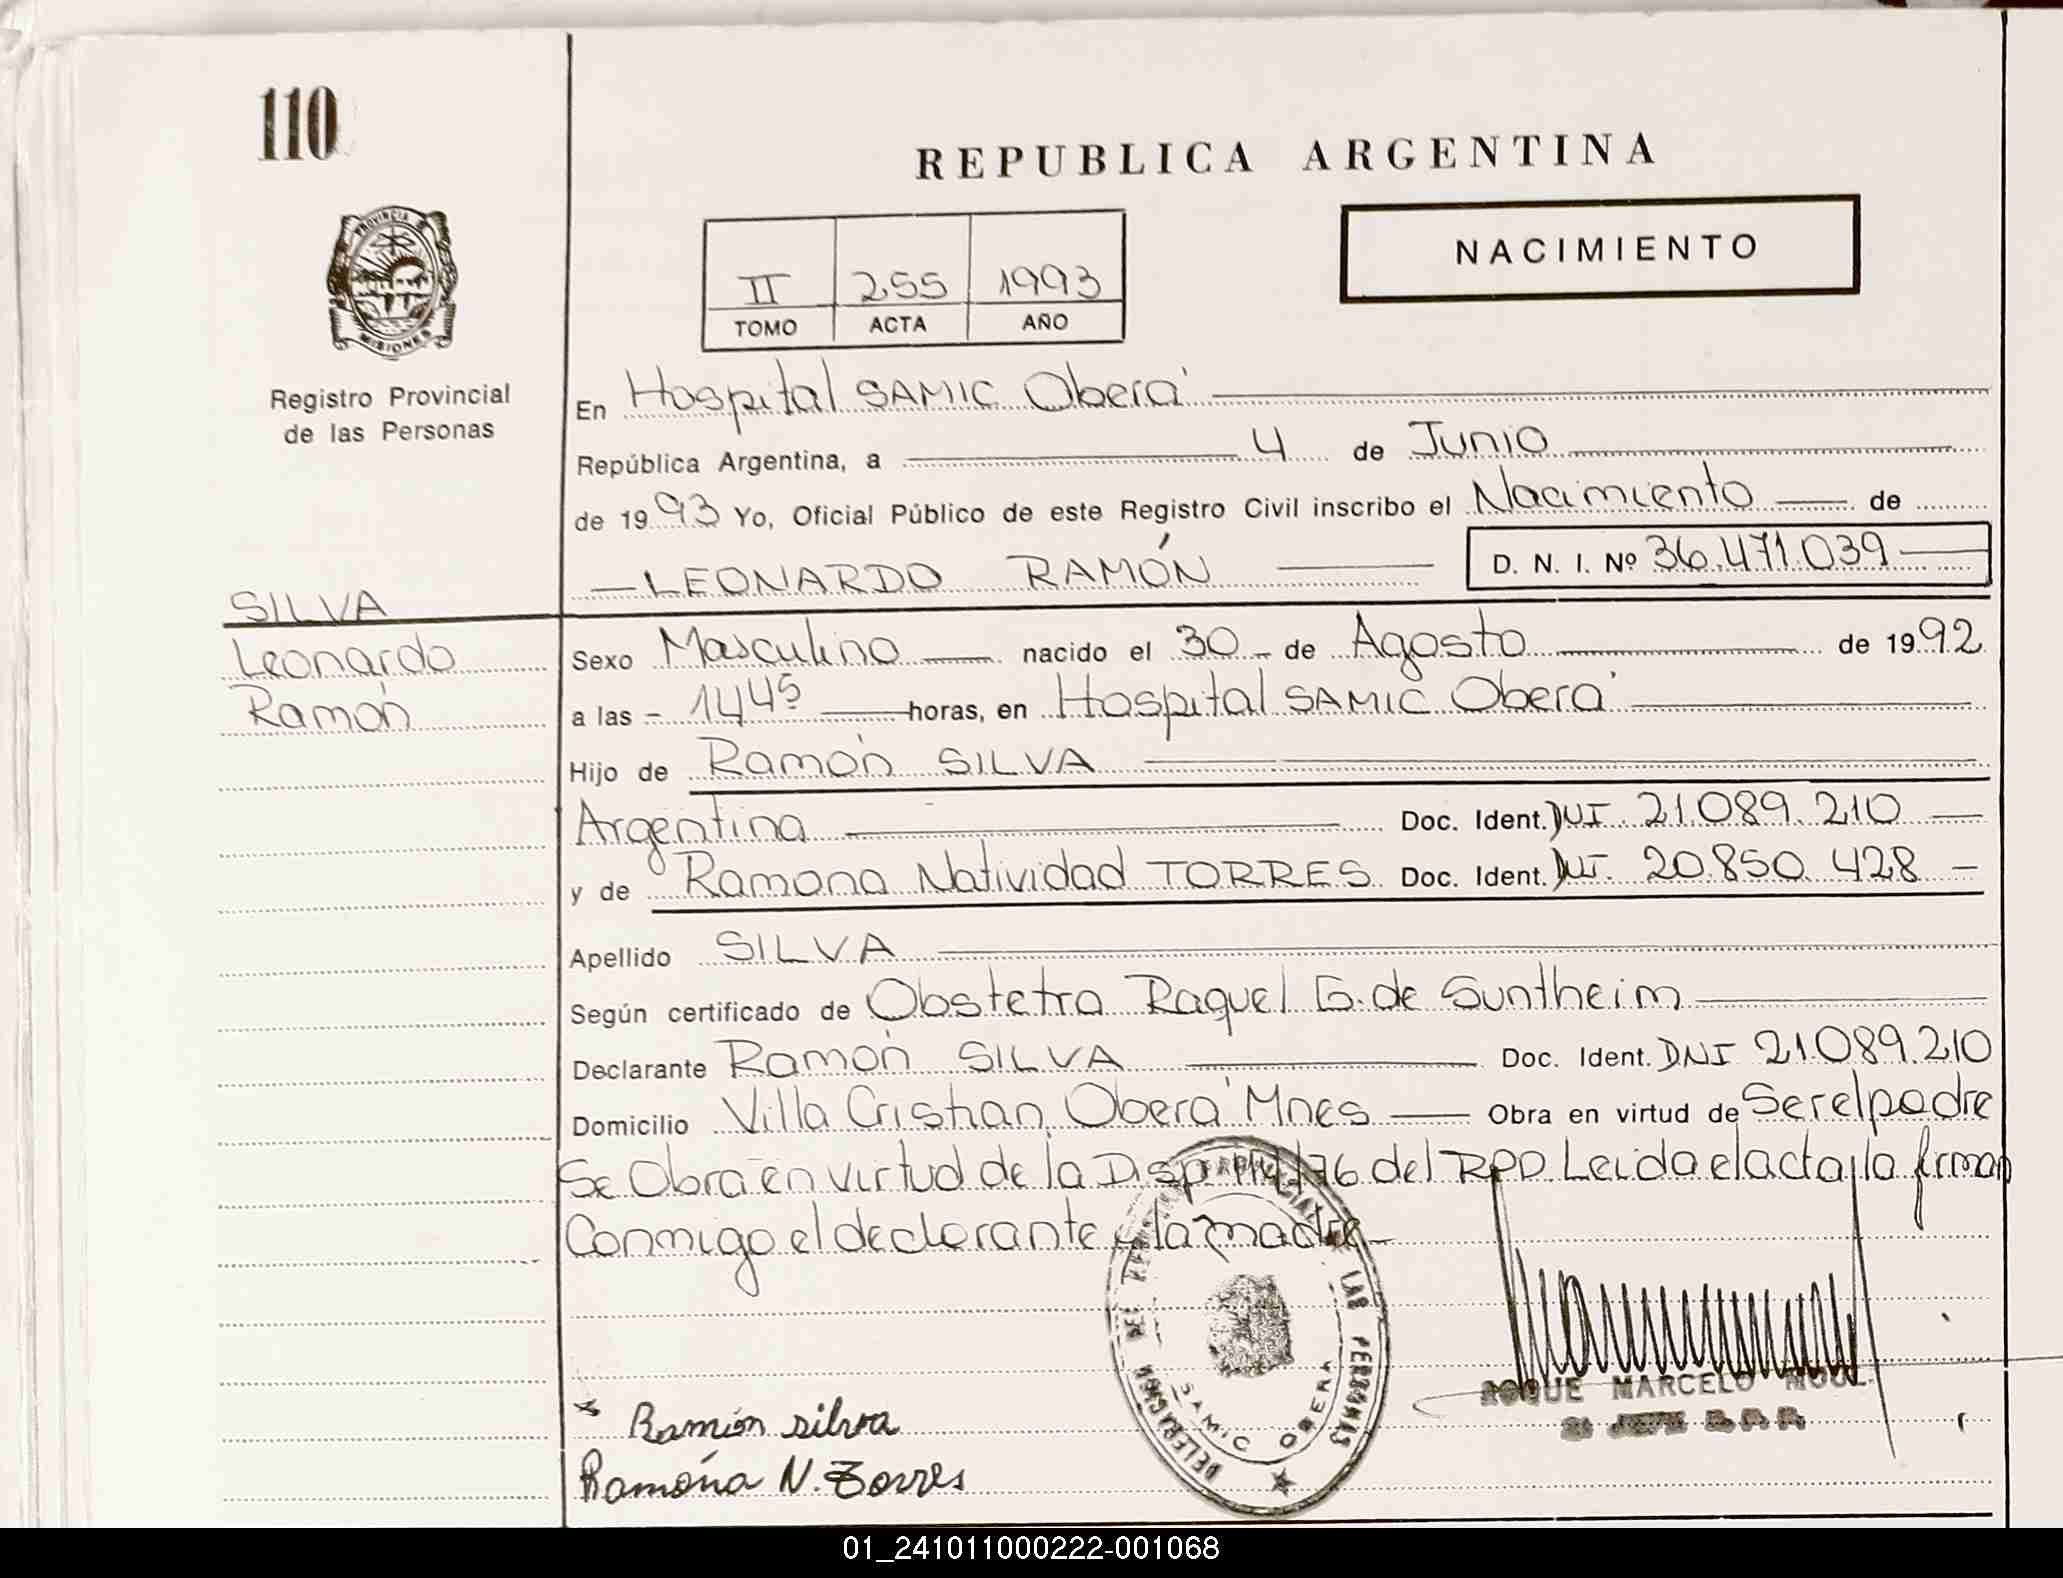 110
REPUBLICA ARGENTINA
PROVINCIA
MISIONES
Registro Provincial
de las Personas
NACIMIENTO
II 255 1993
TOMO ACTA AÑO
En Hospital SAMIC Oberá
República Argentina, a 4 de Junio
de 1993 Yo, Oficial Público de este Registro Civil inscribo el Nacimiento de
LEONARDO RAMÓN D. N. I. Nº 36.471.039
SILVA
Leonardo
Ramón
Sexo Masculino nacido el 30 de Agosto de 1992
a las 14 45 horas, en Hospital SAMIC Oberá
Hijo de Ramón SILVA
Argentina Doc. Ident. DNI 21.089.210
y de Ramona Natividad TORRES Doc. Ident. DNI. 20.850.428
Apellido SILVA
Según certificado de Obstetra Raquel G. de Suntheim
Declarante Ramón SILVA Doc. Ident. DNI 21.089.210
Domicilio Villa Cristian Oberá Mnes Obra en virtud de Ser el padre
Se Obra en virtud de la Disp. del RPP. Leida el acta, la firman
Conmigo el declarante y la madre
DELEGACION DE LAS PERSONAS
SAMIC OBERA
ROQUE MARCELO
JEFE
Ramón silva
Ramona N. Torres
01_241011000222-001068